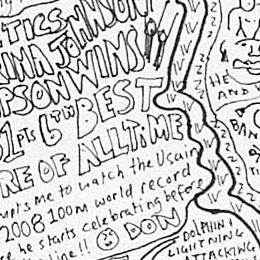 TICS
RINA JOHNSON
PSON WINS
31 pts 6TH BEST
RE OF ALL TIME
me to watch the Usain
2008 100m world record
he starts celebrating before
line!! DON
HE
AND
BAN
DOLPHIN
LIGHTNING
ATTACKING